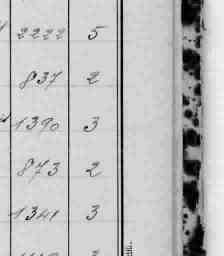 2222 5
837 2
1390 3
873 2
1341 3